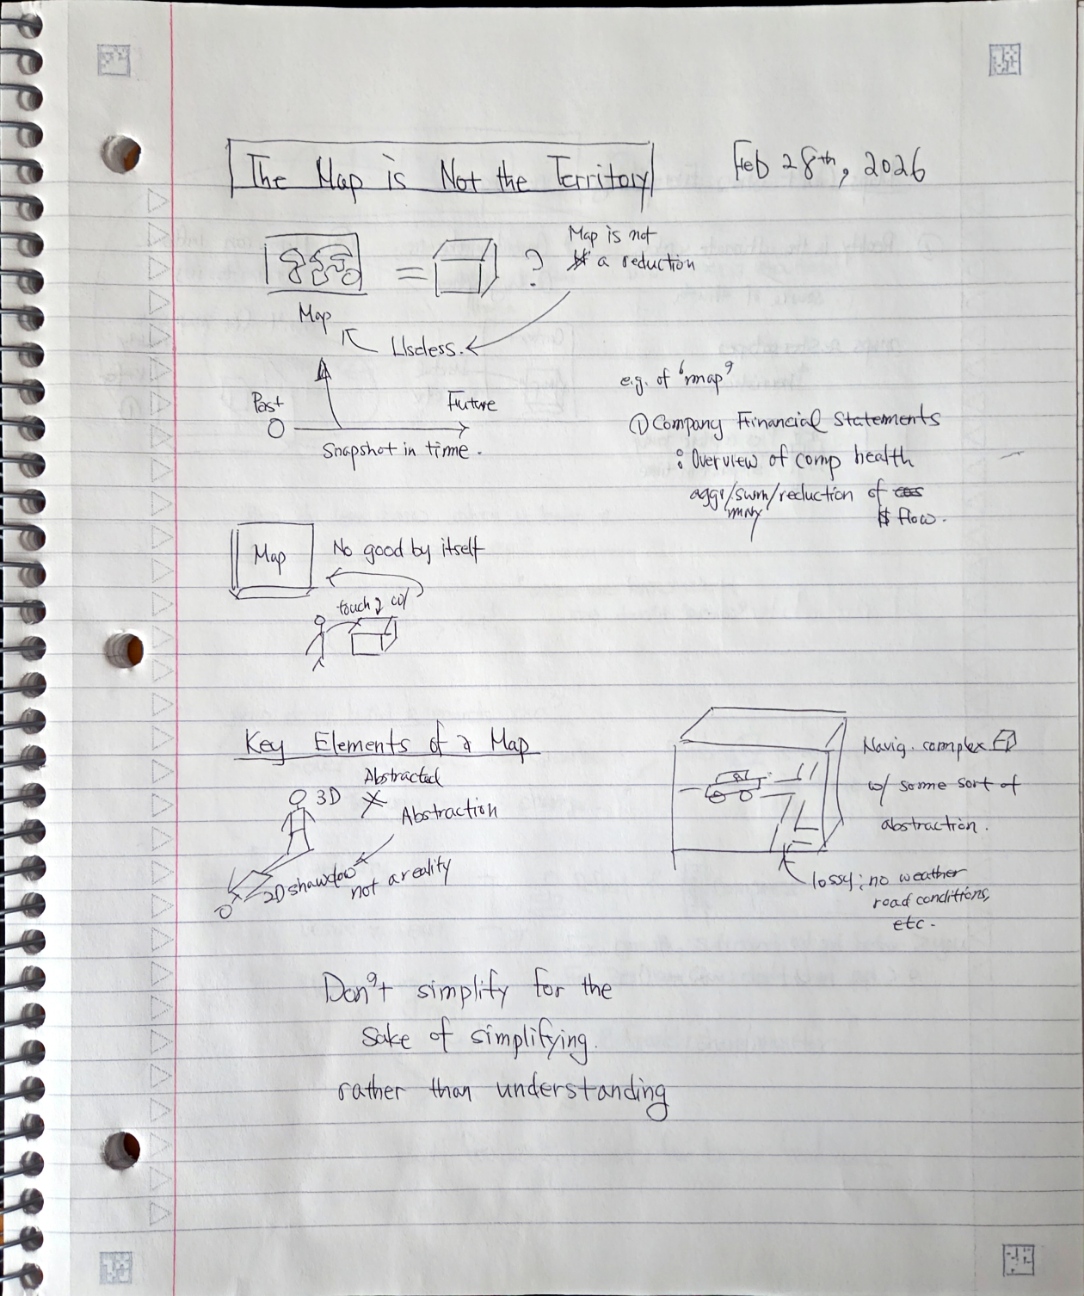 The Map is Not the Territory
Feb 28th, 2026
= ?
Map is not
a reduction
Map
Useless.
Past
Future
Snapshot in time.
e.g. of 'map'
① Company Financial Statements
: Overview of comp health
aggr/sum/reduction of
$ flow.
Map
No good by itself
touch
Key Elements of a Map
Abstracted
3D
Abstraction
2D shawdow
not a reality
Navig. complex
w/ some sort of
abstraction.
lossy; no weather
road conditions,
etc.
Don't simplify for the
sake of simplifying.
rather than understanding